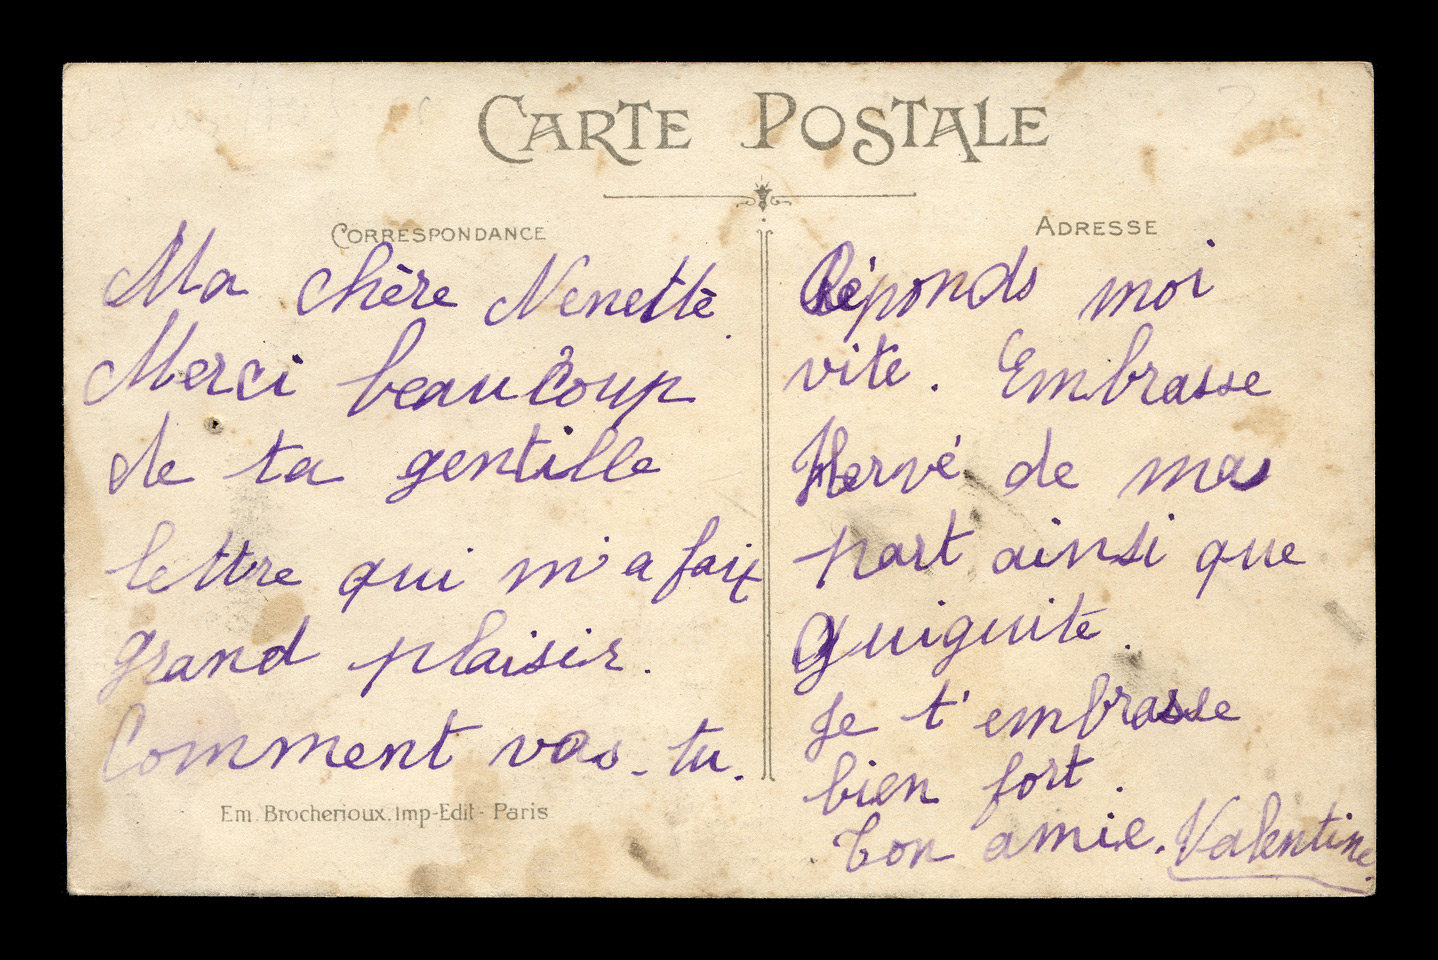 CARTE POSTALE
CORRESPONDANCE
Ma chère Nenette.
Merci beaucoup
de ta gentille
lettre qui m'a fait
grand plaisir.
Comment vas-tu.
Em. Brocherioux. Imp-Edit - Paris
ADRESSE
Réponds moi
vite. Embrasse
Hervé de ma
part ainsi que
Guiguite.
Je t'embrasse
bien fort.
Ton amie. Valentine.